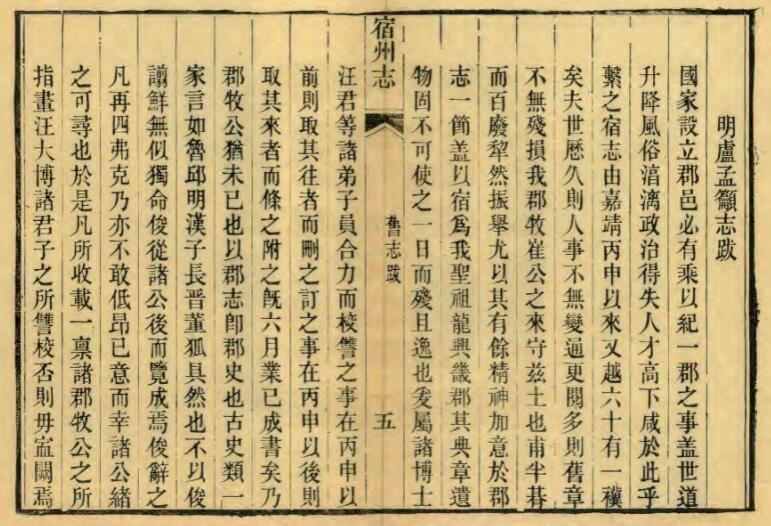 明盧孟籲志跋
國家設立郡邑必有乘以紀一郡之事葢世道
升降風俗渻漓政治得失人才高下咸於此乎
繫之宿志由嘉靖丙申以來又越六十有一禩
矣夫世歷久則人事不無變通更閱多則舊章
不無殘損我郡牧崔公之來守茲土也甫半朞
而百廢犂然振舉尤以其有餘精神加意於郡
志一節葢以宿爲我聖祖龍興畿郡其典章遺
物固不可使之一日而殘且逸也爰屬諸博士
宿州志
舊志跋
五
汪君等諸弟子員合力而校讐之事在丙申以
前則取其往者而刪之訂之事在丙申以後則
取其來者而條之附之旣六月業已成書矣乃
郡牧公猶未已也以郡志卽郡史也古史類一
家言如魯邱明漢子長晉董狐具然也不以俊
譾鮮無似獨命俊從諸公後而覽成焉俊辭之
凡再四弗克乃亦不敢低昂已意而幸諸公緒
之可尋也於是凡所收載一禀諸郡牧公之所
指畫汪大博諸君子之所讐校否則毋寍闕焉